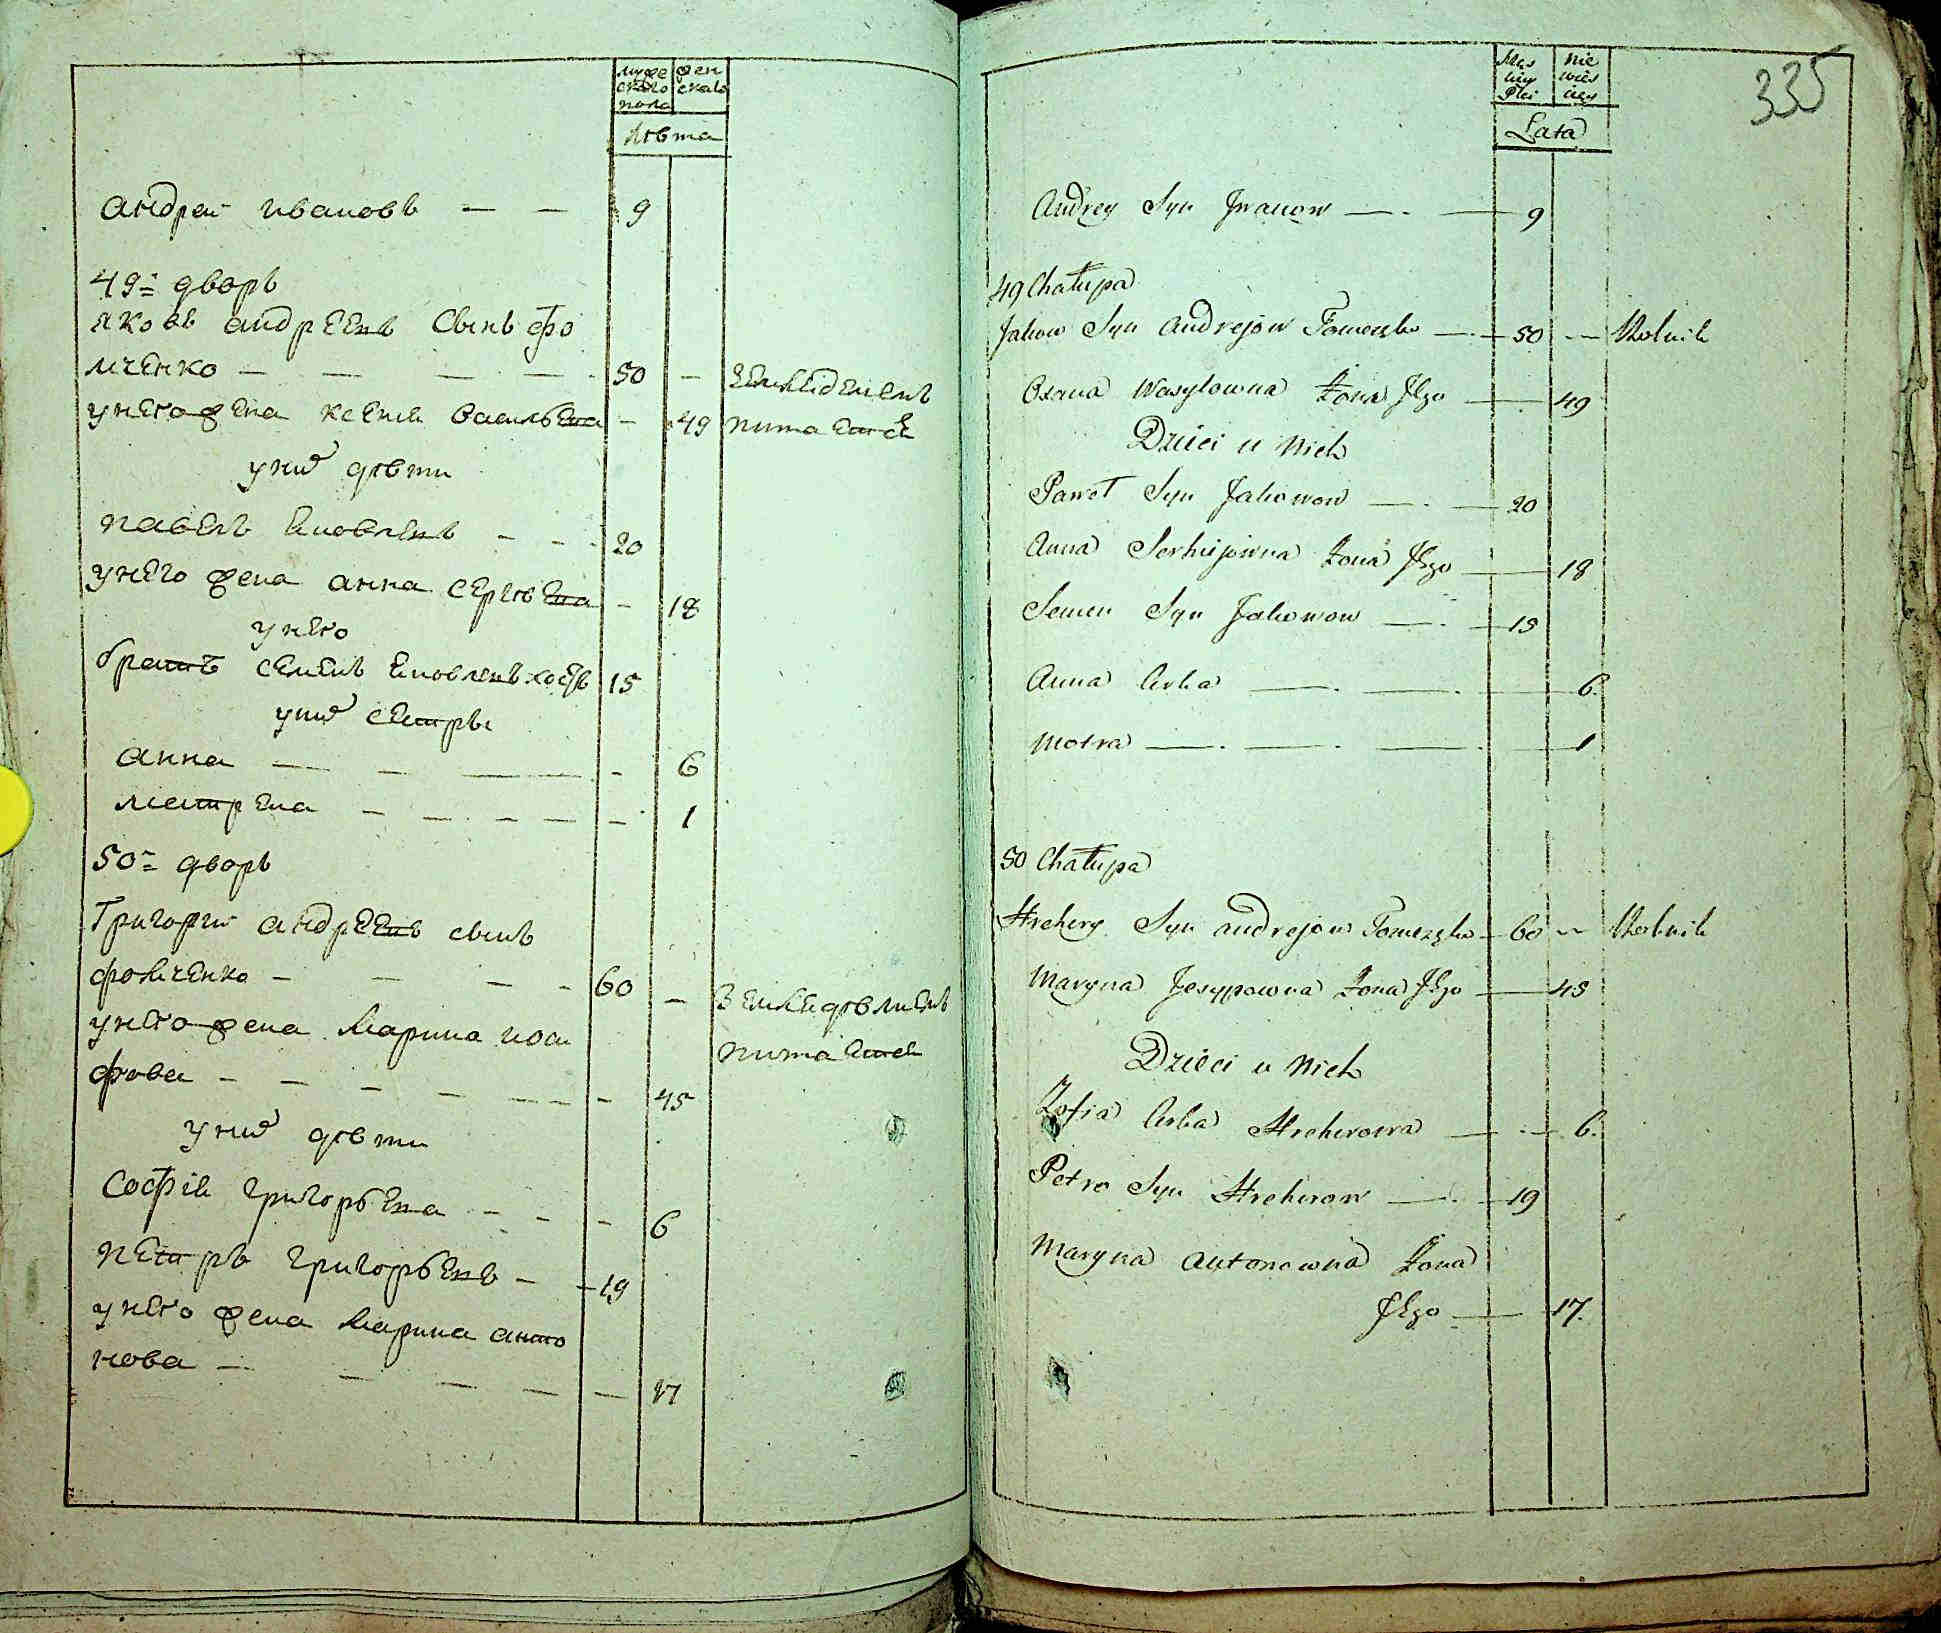 муже
скаго
пола
жен
скаго
лѣта
андреи ивановъ — — 9
49й дворъ
яковъ андреевъ сынъ фо
мченко — — — — 50 —
земледѣлиемъ
унего жена ксения васильева — 49
питается
униⷯ дѣти
павелъ яковлевъ — — — 20
унего жена анна сергѣева — 18
унего
братъ семенъ яковлевъ 15
униⷯ сестры
анна — — — — 6
матрена — — — — — 1
50й дворъ
Григорий андреевъ сынъ
фомченко — — — — 60 —
земледѣлиемъ
унего жена Марина иоси
питается
фова — — — — — — 45
униⷯ дѣти
Софія григорьева — — — 6
петръ григорьевъ — — 19
унего жена Марина анто
нова — — — — — 17
335
Męs
kiey
Płci
nie
wieś
ciey
Lata
Andrey Syn Iwanow — . — 9
49 Chałupa
Jakow Syn Andrejow Fomczenko — . — 50 — Rolnik
Oxana Wasylowna Żona Jego — . 49
Dzieci u Nich
Paweł Syn Jakowow — . — 20
Anna Serhiejowna Żona Jego — 18
Semen Syn Jakowow — . — 15
Anna Corka — . — . — 6.
Motra — . — . — . — 1
50 Chałupa
Hrehory Syn Andrejow Fomczenko — 60 — Rolnik
Maryna Jesypowna Żona Jego — 45
Dzieci u Nich
Zofia Corka Hrehorowa — . — 6.
Petro Syn Hrehorow — . — 19
Maryna Antonowna Żona
Jego — 17.